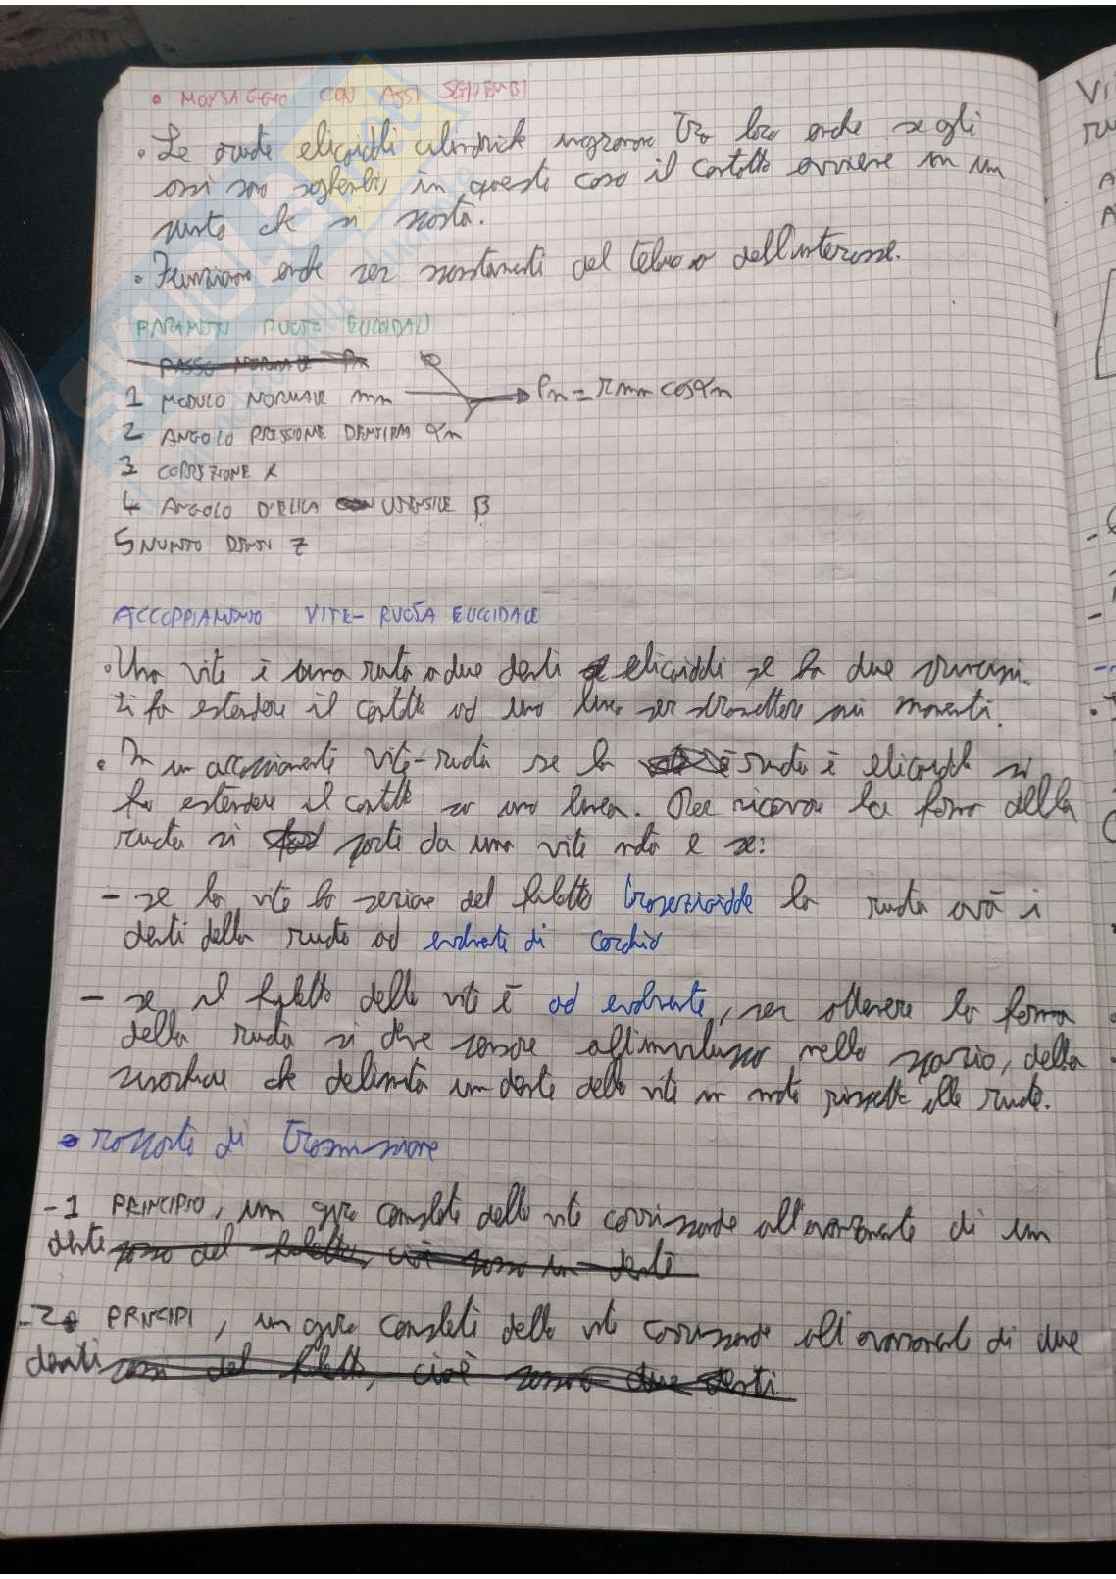 • MONTAGGIO CON ASSI SGHEMBI
• Le ruote elicoidali cilindriche ingranano tra loro anche se gli
assi sono sghembi, in questo caso il contatto avviene in un
punto che si sposta.
• Funziona anche per spostamenti del telaio o dell'interasse.
PARAMETRI RUOTE ELICOIDALI
PASSO NORMALE Pn
1 MODULO NORMALE mn → Pn = π mn cos αn
2 ANGOLO PRESSIONE DENTIERA αn
3 CORREZIONE x
4 ANGOLO D'ELICA UTENSILE β
5 NUMERO DENTI z
ACCOPPIAMENTO VITE - RUOTA ELICOIDALE
• Una vite è una ruota a due denti elicoidali se ha due principi.
Si fa estendere il contatto ad una linea per trasmettere più momenti.
• In un accoppiamento vite-ruota se la ruota è elicoidale si
fa estendere il contatto su una linea. Per ricavare la forma della
ruota si parte da una vite nota e se:
- se la vite ha sezione del filetto trapezoidale la ruota avrà i
denti della ruota ad evolvente di cerchio
- se il filetto della vite è ad evolvente, per ottenere la forma
della ruota si deve pensare all'inviluppo nello spazio, della
superficie che delimita un dente della vite in moto rispetto alla ruota.
• rapporto di trasmissione
-1 PRINCIPIO, un giro completo della vite corrisponde all'avanzamento di un
dente passo del filetto, cioè passo un dente
-2 PRINCIPI, un giro completo della vite corrisponde all'avanzamento di due
denti passi del filetto, cioè passo due denti